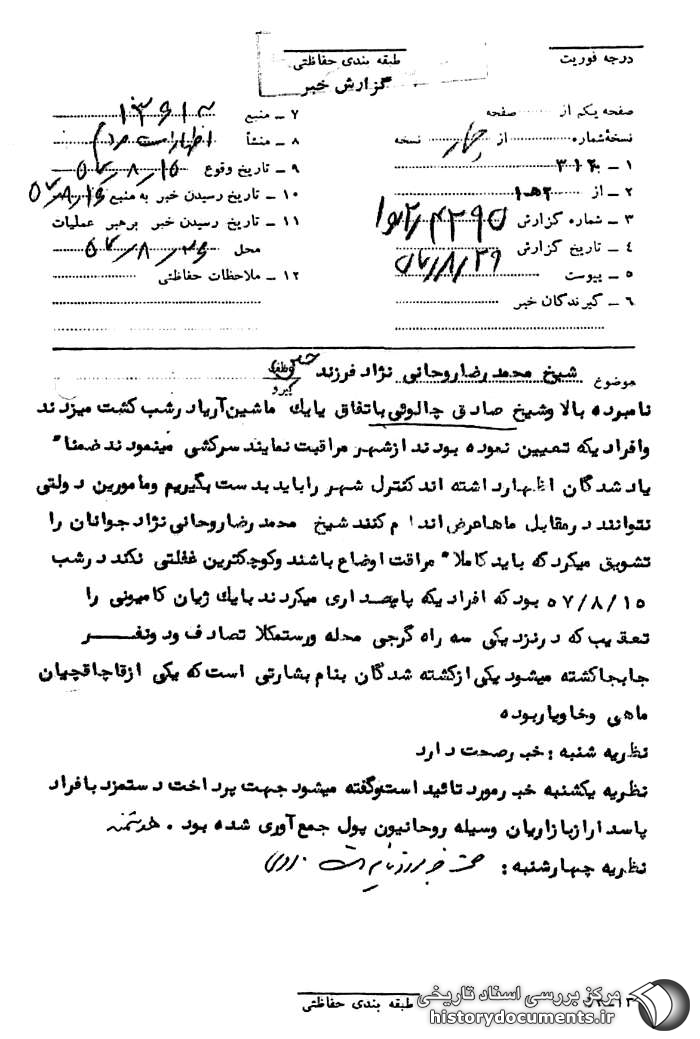 درجه فوریت
طبقه بندی حفاظتی
گزارش خبر
صفحه یکم از صفحه
نسخه شماره از چهار نسخه
۱ – ۳۱۲
۲ – از ۲ه‍۱
۳ – شماره گزارش
۴ – تاریخ گزارش ۵۷/۸/۲۹
۵ – پیوست
۶ – گیرندگان خبر
۷ – منبع
۸ – منشأ اظهارات مردم
۹ – تاریخ وقوع ۵۷/۸/۱۵
۱۰ – تاریخ رسیدن خبر به منبع
۱۱ – تاریخ رسیدن خبر برهبر عملیات
محل ۵۷/۸/۲۶
۱۲ – ملاحظات حفاظتی
موضوع شیخ محمدرضاروحانی نژاد فرزند
نامبرده بالا وشیخ صادق چالوئی باتفاق یایک ماشین آریادرشب گشت میزدند
وافرادیکه تعیین نموده بودند ازشهر مراقبت نمایند سرکشی مینمودند ضمنا"
یادشدگان اظهارداشته اند کنترل شهر راباید بدست بگیریم ومامورین دولتی
نتوانند درمقابل ماهاعرض اندام کنند شیخ محمدرضاروحانی نژاد جوانان را
تشویق میکرد که باید کاملا" مراقت اوضاع باشند وکوچکترین غفلتی نکند درشب
۵۷/۸/۱۵ بود که افرادیکه پاسداری میکردند بایک ژیان کامیونی را
تعقیب که درنزدیکی سه راه گرجی محله ورستمکلا تصادف ودونفر
جابجاکشته میشود یکی ازکشته شدگان بنام بشارتی است که یکی ازقاچاقچیان
ماهی وخاویاربوده
نظریه شنبه : خبرصحت دارد
نظریه یکشنبه خبرمورد تائید است وگفته میشود جهت پرداخت دستمزد بافراد
پاسدارازبازاریان وسیله روحانیون پول جمع آوری شده بود .
نظریه چهارشنبه :
طبقه بندی حفاظتی
مرکز بررسی اسناد تاریخی
historydocuments.ir